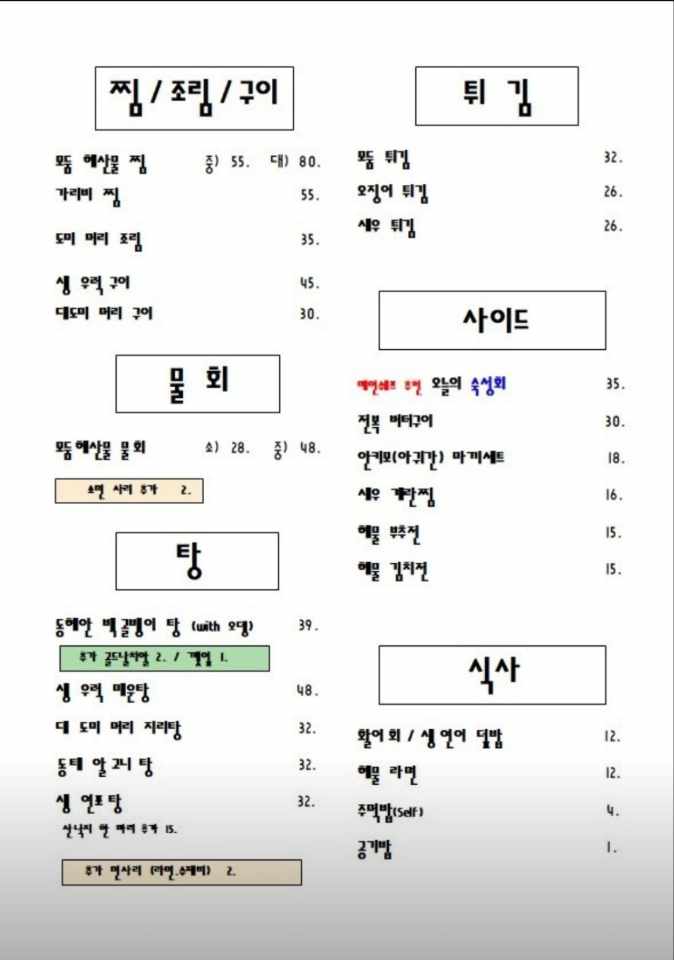 찜 / 조림 / 구이
모둠 해산물 찜 중) 55. 대) 80.
가리비 찜 55.
도미 머리 조림 35.
생 우럭 구이 45.
대도미 머리 구이 30.
물 회
모둠해산물 물회 소) 28. 중) 48.
소면 사리 추가 2.
탕
동해안 백골뱅이 탕 (with 오뎅) 39.
추가 골드날치알 2. / 깻잎 1.
생 우럭 매운탕 48.
대 도미 머리 지리탕 32.
동태 알 고니 탕 32.
생 연포탕 32.
산낙지 한 마리 추가 15.
추가 면사리 (라면.수제비) 2.
튀 김
모둠 튀김 32.
오징어 튀김 26.
새우 튀김 26.
사이드
메인쉐프 추천 오늘의 숙성회 35.
전복 버터구이 30.
안키모(아귀간) 마끼세트 18.
새우 계란찜 16.
해물 부추전 15.
해물 김치전 15.
식사
활어회 / 생연어 덮밥 12.
해물 라면 12.
주먹밥(Self) 4.
공기밥 1.